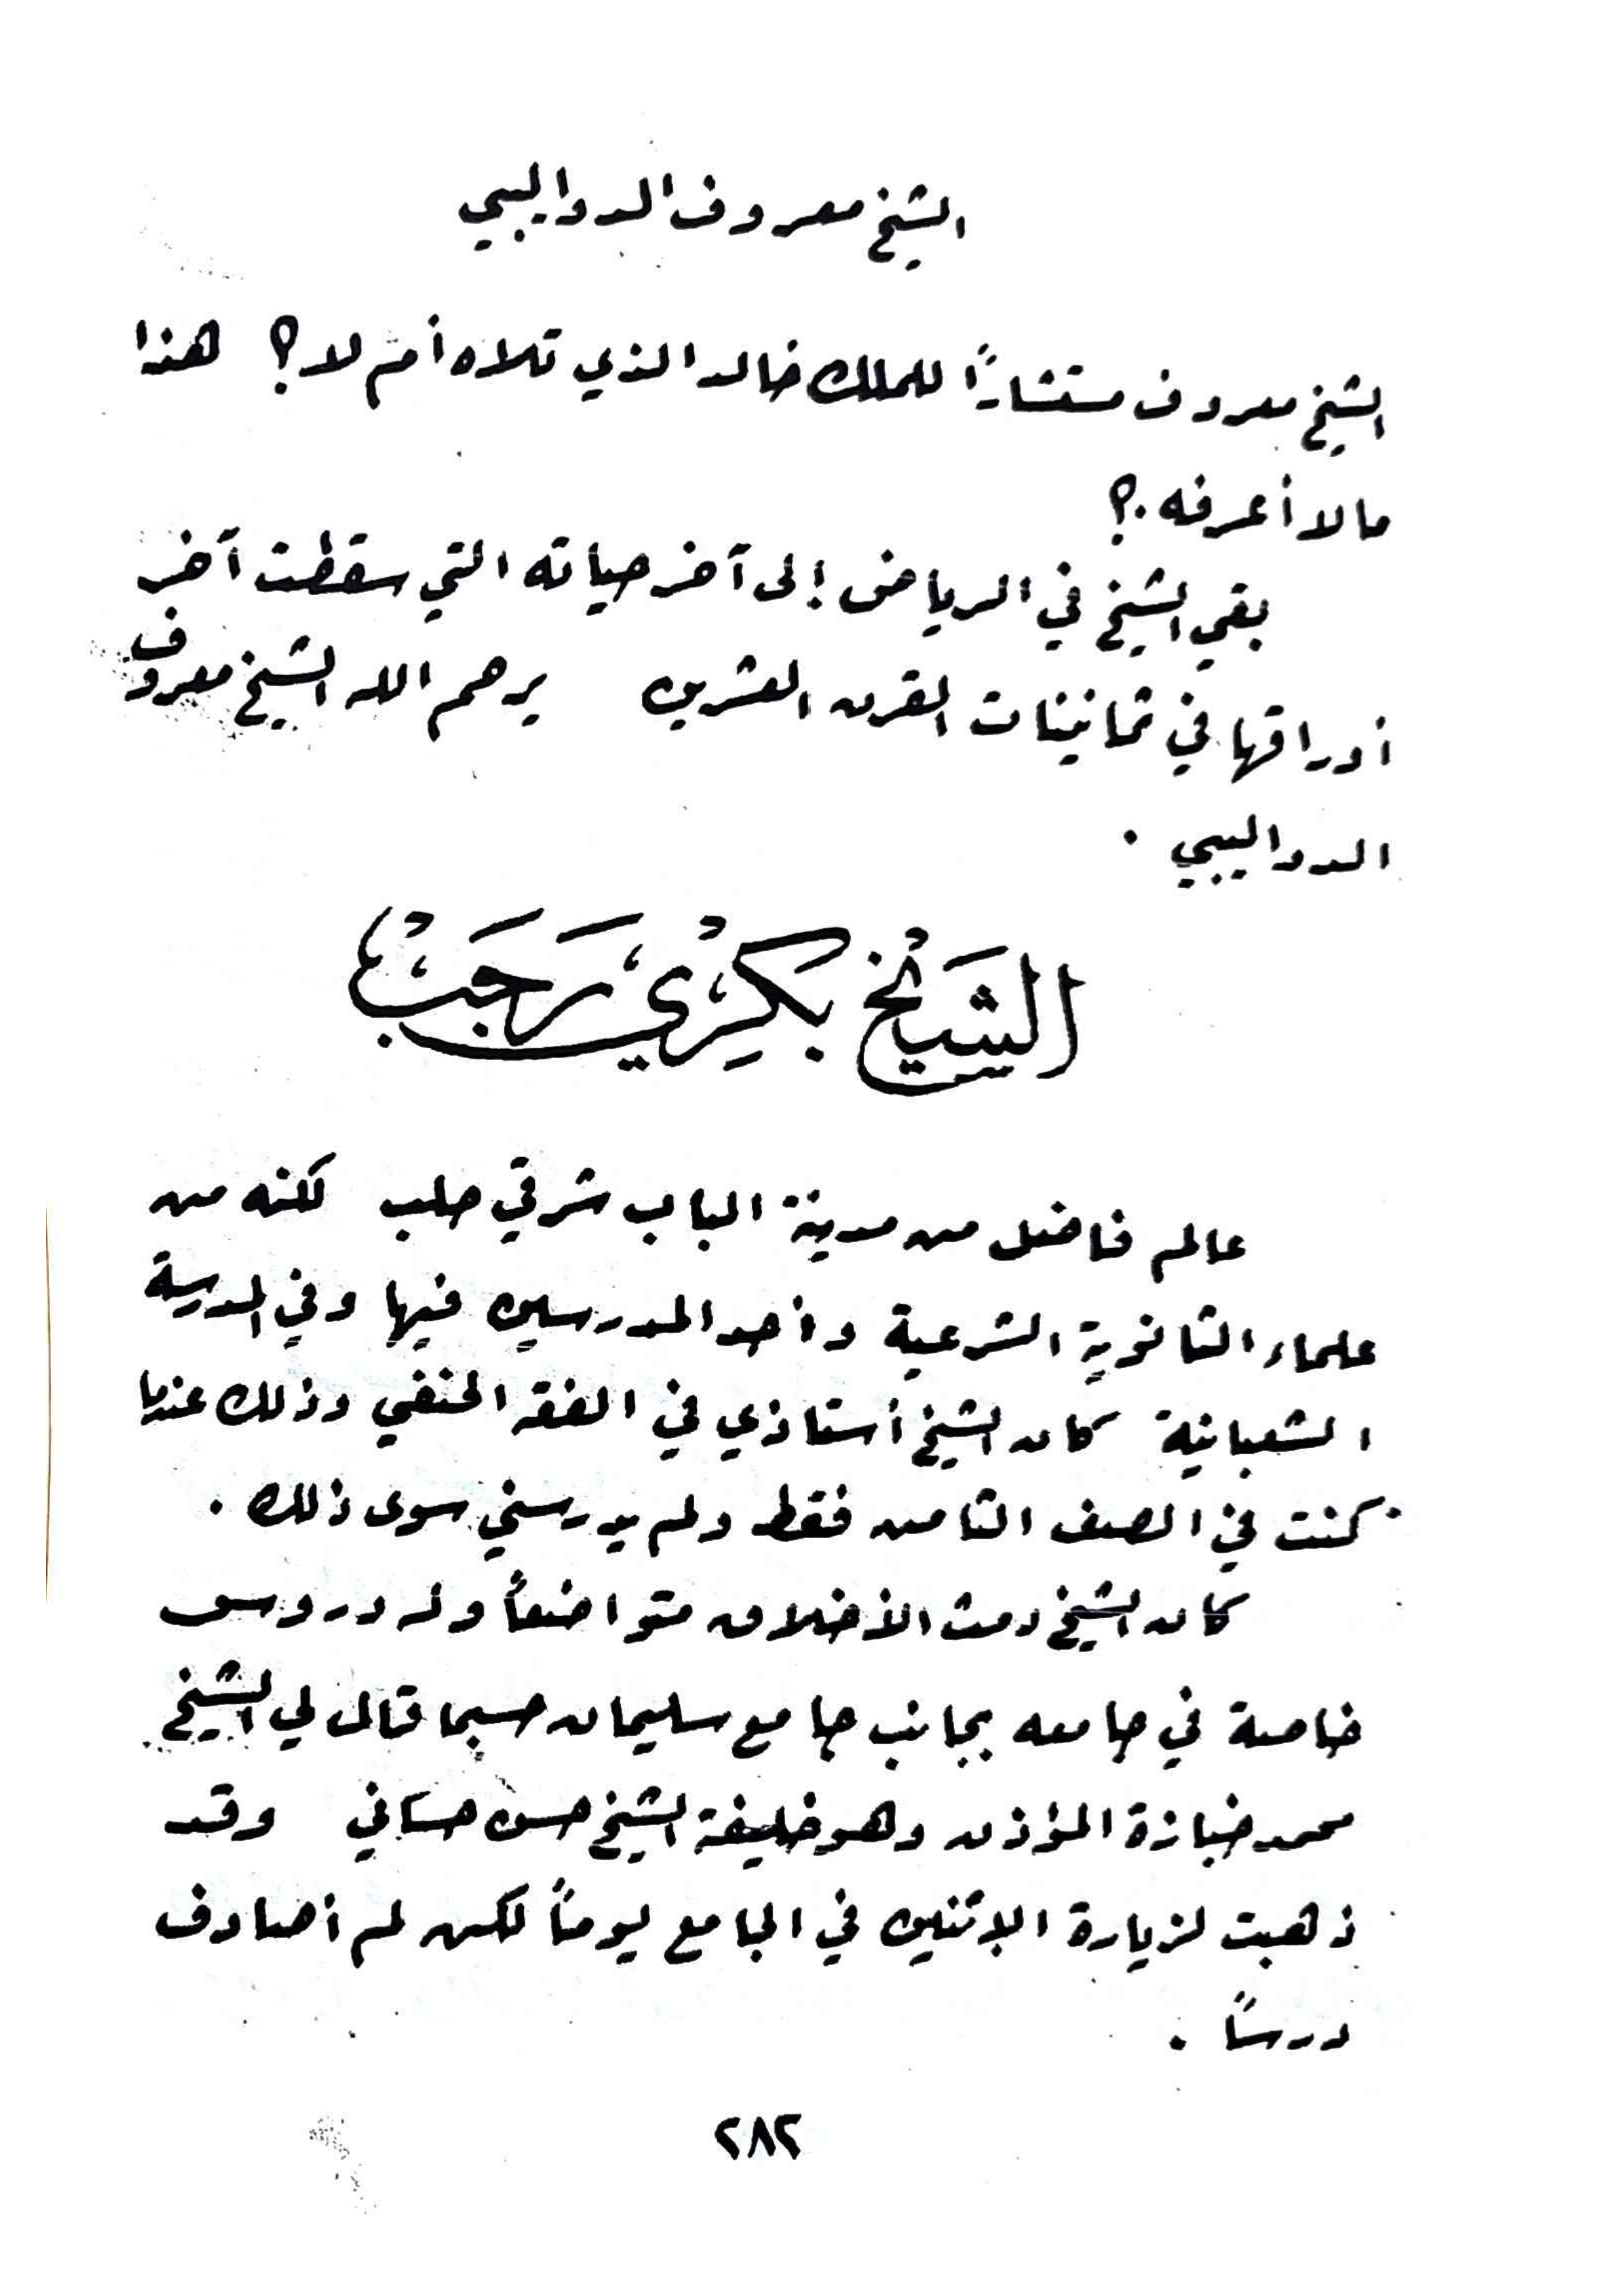 الشيخ معروف الدواليبي
الشيخ معروف مستشاراً للملك خالد الذي تلاه أم لا؟ هذا
مالا أعرفه .؟
بقي الشيخ في الرياض إلى آخر حياته التي سقطت آخر
أوراقها في ثمانينات القرن العشرين يرحم الله الشيخ معروف
الدواليبي .
الشَيْخ بَكْرِيْ رَجَبْ
عالم فاضل من مدينة الباب شرقي حلب لكنه من
علماء الثانوية الشرعية وأحد المدرسين فيها وفي المدرسة
الشعبانية كان الشيخ أستاذي في الفقه الحنفي وذلك عندما
كنت في الصف الثامن فقط ولم يدرسني سوى ذلك .
كان الشيخ دمث الأخلاق متواضعاً وله دروس
خاصة في جامعه بجانب جامع سليمان حسبما قال لي الشيخ
محمد خبازة المؤذن وهو خليفة الشيخ حسن حساني وقد
ذهبت لزيارة الإثنين في الجامع يوماً لكن لم أصادف
درساً .
٢٨٢